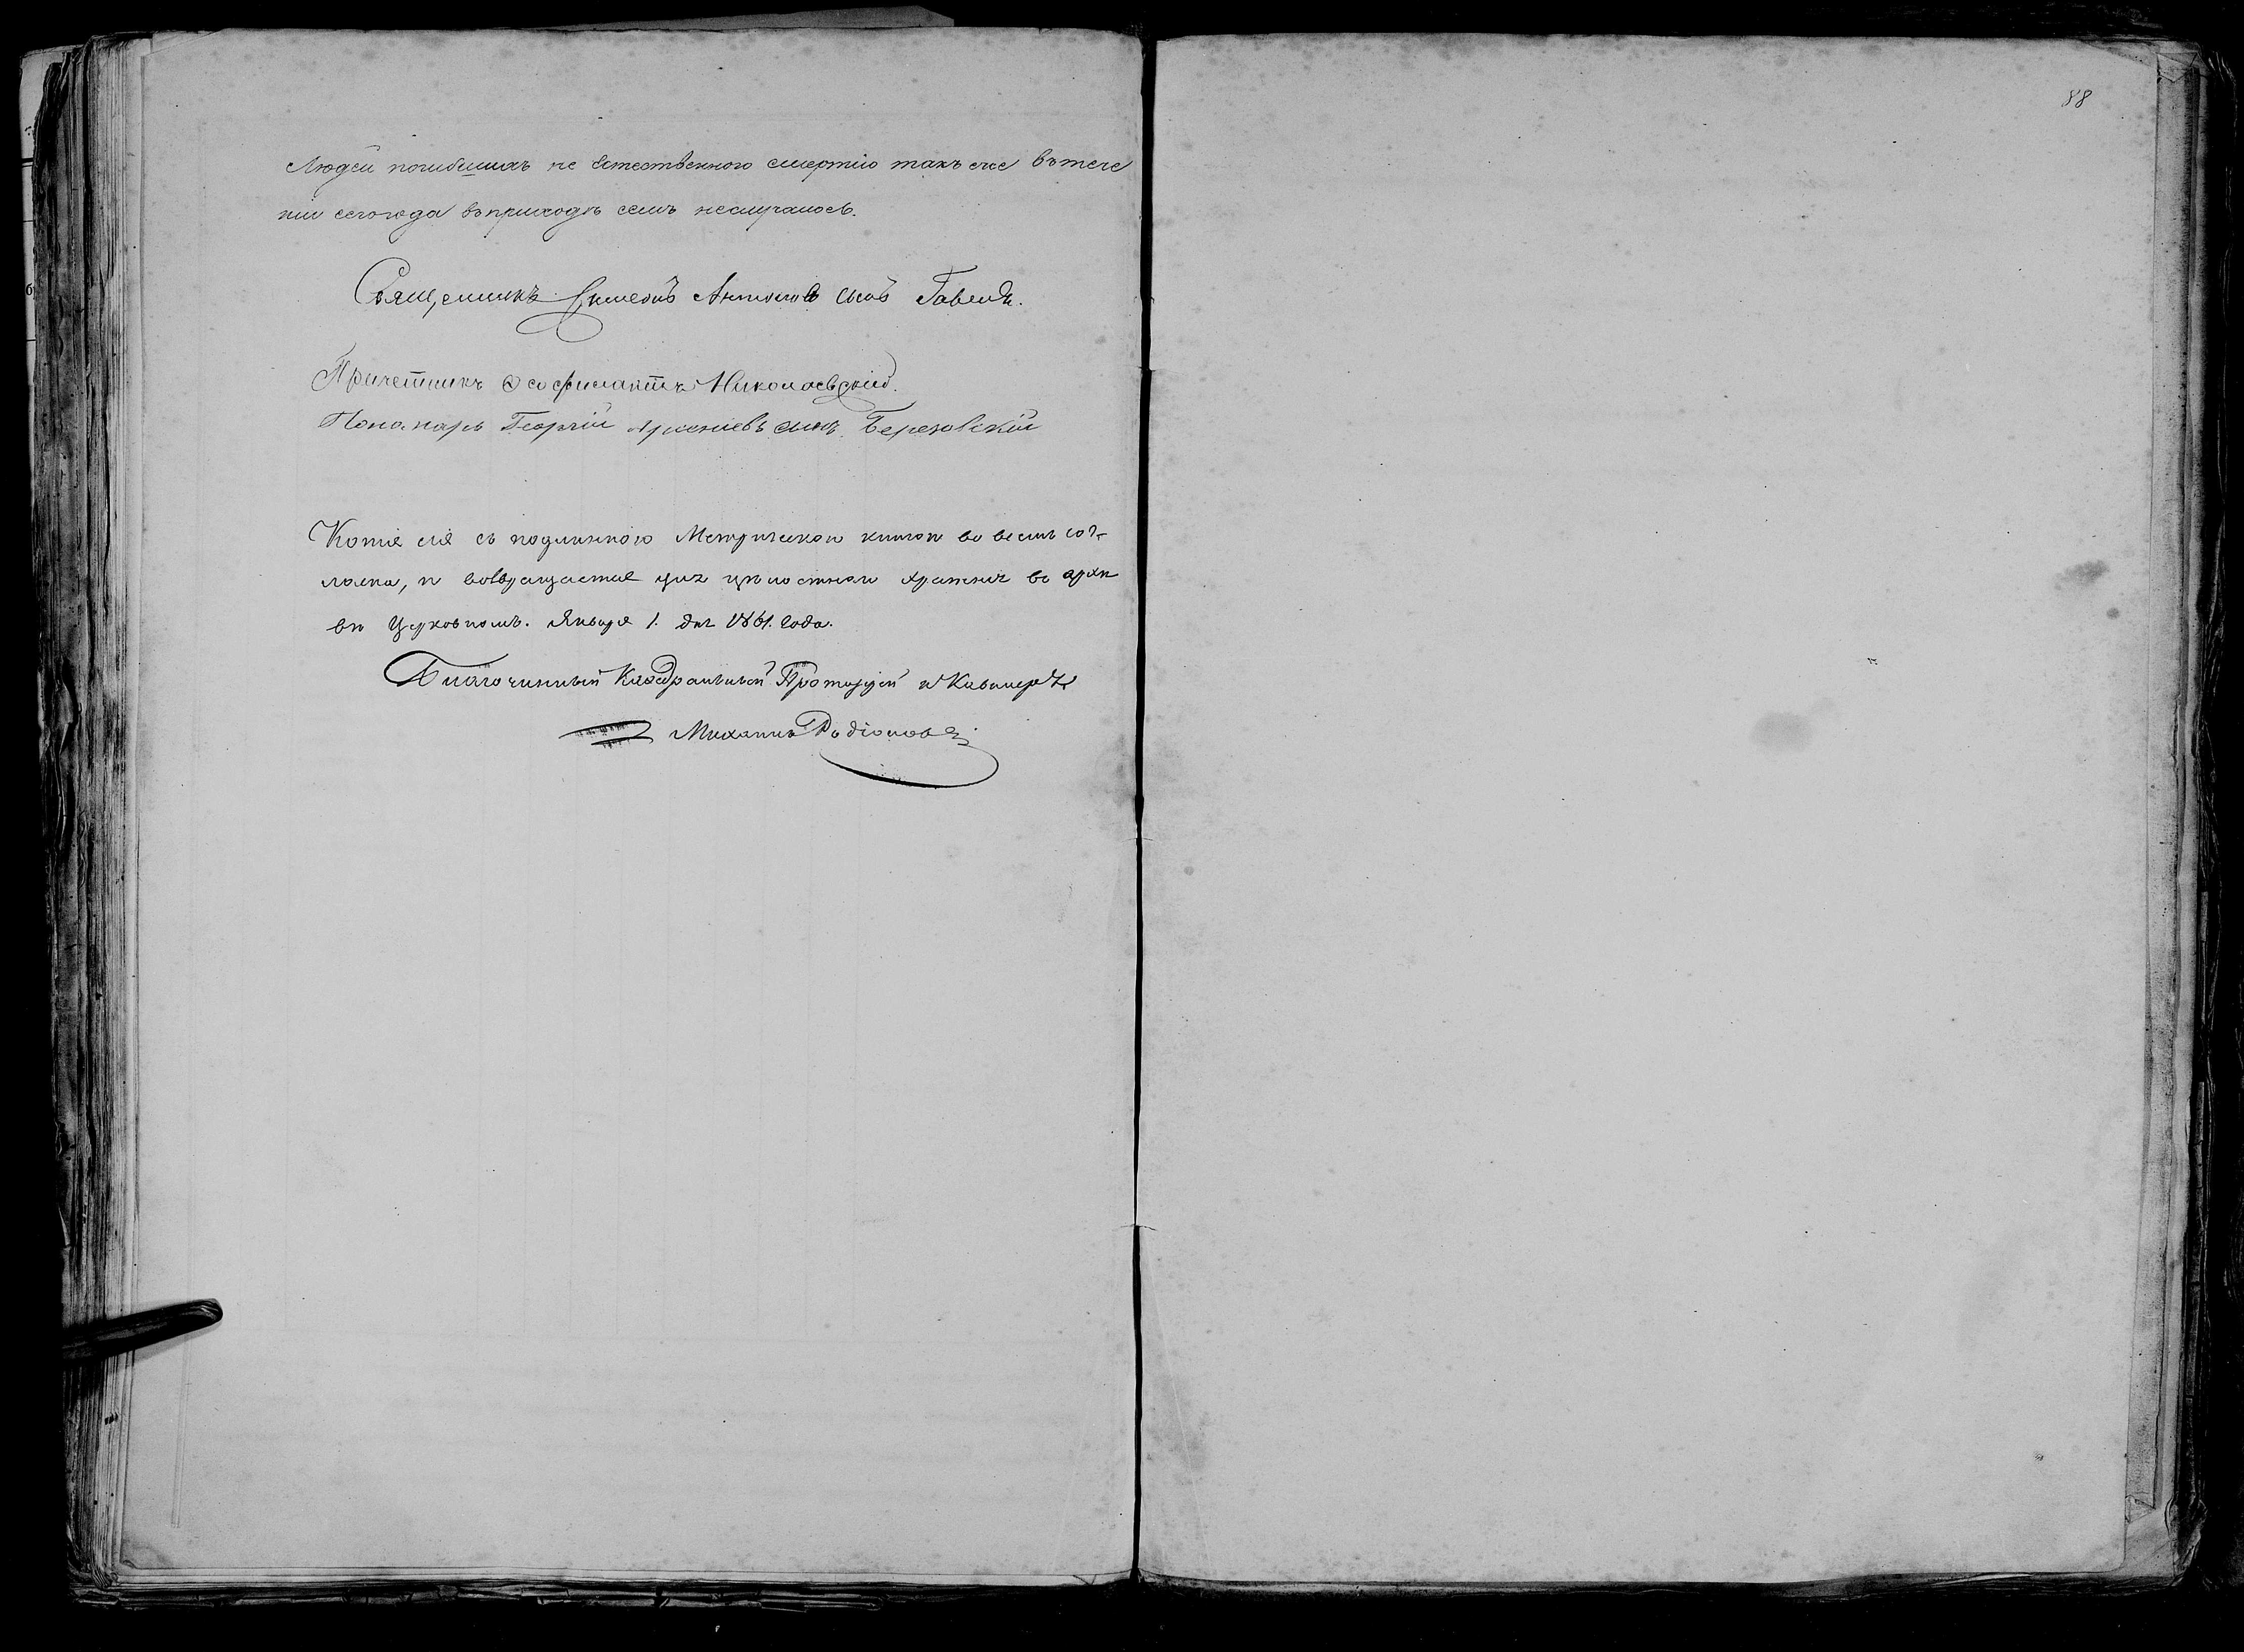 88
Людей погибшихъ не естественною смертію такъ же въ тече
нии сего года въ приходѣ семъ неслучалось.
Священникъ Симеонъ Антоновъ сынъ
Причетникъ Николаевскій.
Понамарь Георгій Арсеніевъ сынъ Березовскій
Копія сія съ подлинною Метрическою книгою во всемъ сог-
ласна, и возвращается для цѣлостнаго храненія въ архи
вѣ Церковномъ. Января 1. дня 1861. Года.
Благочинный Каѳедральный Протоіерей и Кавалеръ
Михаилъ Родіоновъ